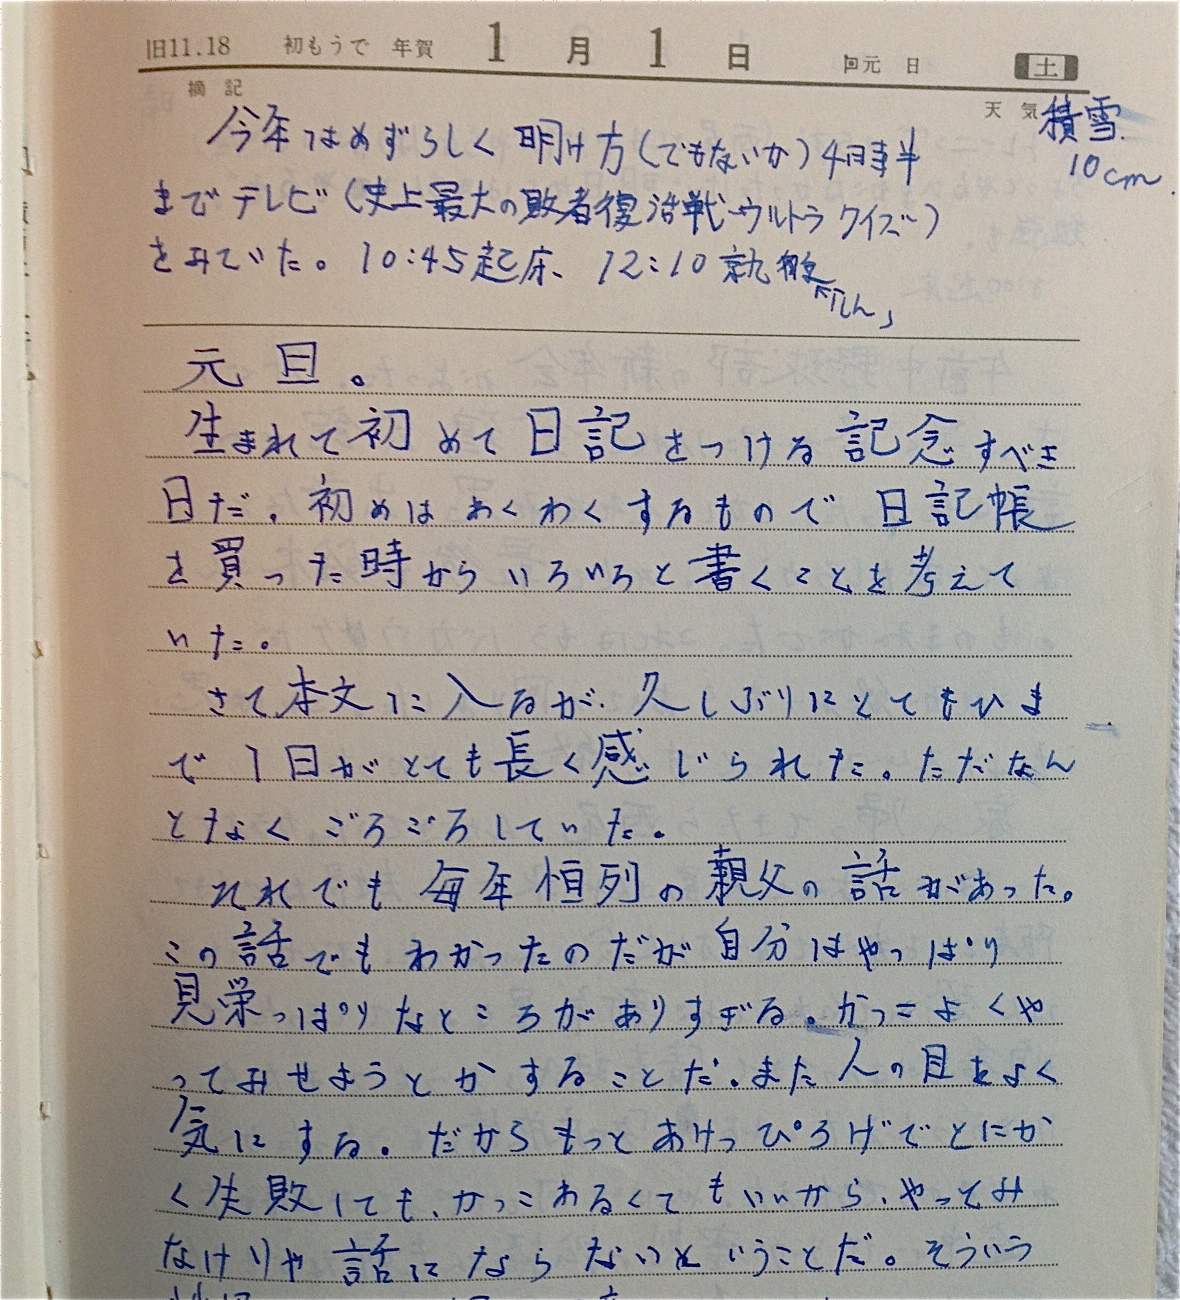 旧11.18 初もうで 年賀 1月1日 元日 土
摘記
天気 積雪
10cm
今年はめずらしく明け方(でもないか)4時半
までテレビ(史上最大の敗者復活戦ウルトラクイズ)
をみていた。10:45起床、12:10就寝
元旦。
生まれて初めて日記をつける記念すべき
日だ。初めはわくわくするもので日記帳
を買った時からいろいろと書くことを考えて
いた。
さて本文に入るが、久しぶりにとてもひま
で1日がとても長く感じられた。ただなん
となくごろごろしていた。
それでも毎年恒列の親父の話があった。
この話でもわかったのだが自分はやっぱり
見栄っぱりなところがありすぎる。かっこよくや
ってみせようとかすることだ。また人の目をよく
気にする。だからもっとあけっぴろげでとにか
く失敗しても、かっこわるくてもいいから、やってみ
なけりや話にならないということだ。そういう